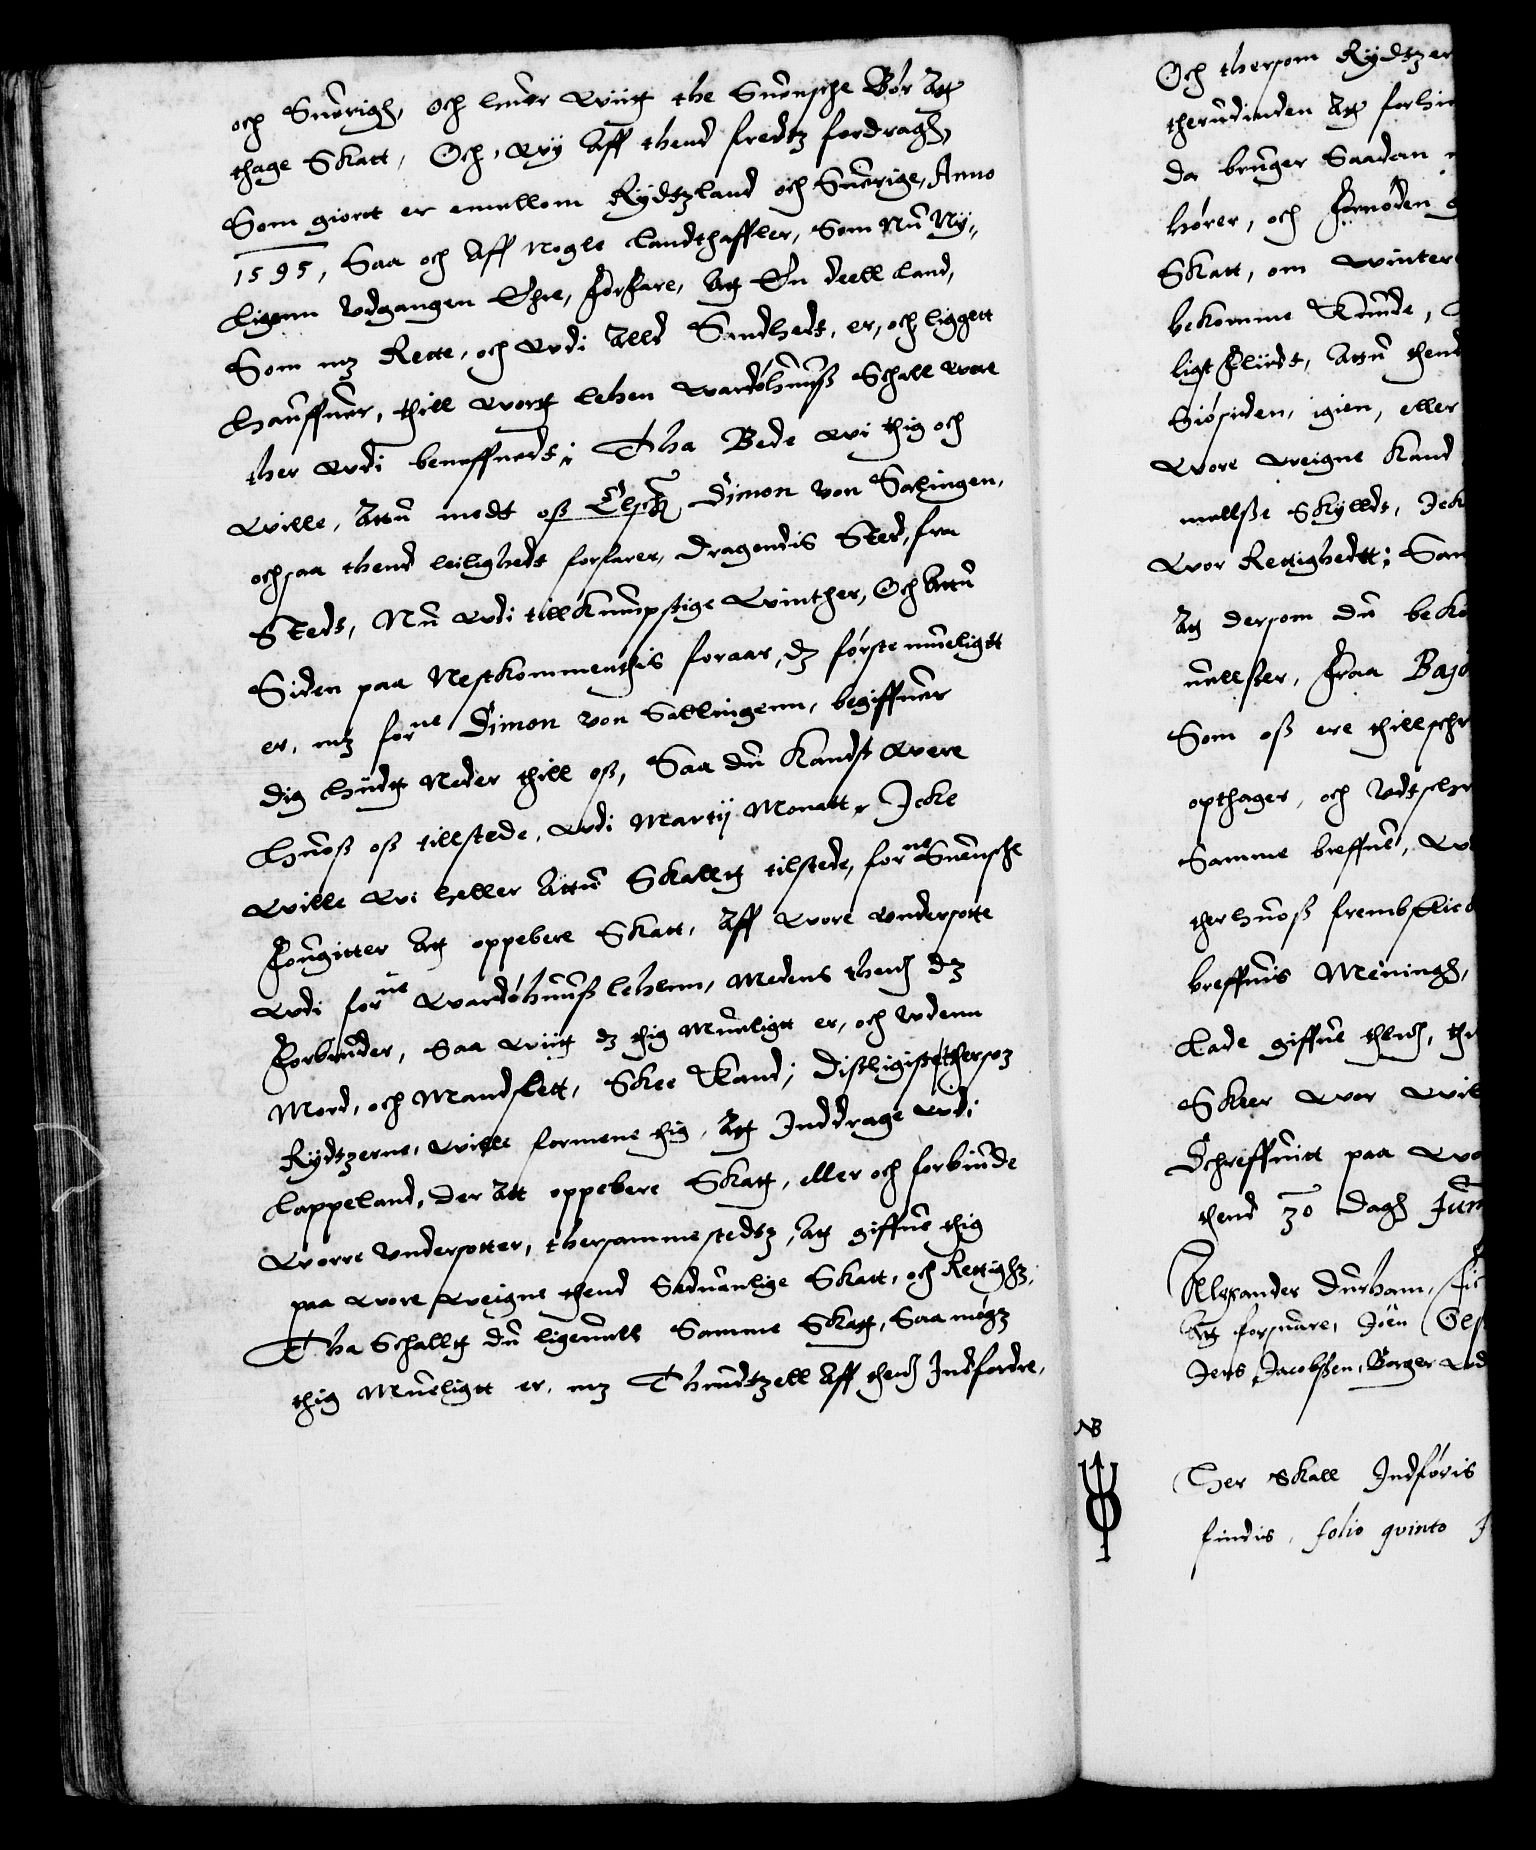 och Suerigh, Och huor wiitt the Suensche Bør Att
thage Skatt, Och, wy Aff thend fredtz fordragh,
Som giortt er emellom Rydtzland och Suerige, Anno
1595, Saa och Aff Nogle Landthaffler, Som Nu Ny„
ligenn Udgangen Ehre, Forfare, Att En deell Land,
Som mz Rette, och wdi Alld Sandhedt, er, och liggett
haffuer, thill wortt lehen wardøhuuß Schall were
ther wdi beneffnedt; Tha Bede wi thig och
wille, Attu medt oß Elsch: Simon von Salingen,
ochsaa thend leilighedt forfarer, Dragendis Sted, fra
Stedt, Nu wdi tillkumpstige winther, Och Attu
Siden paa Nestkommenthis foraar, dz første mueligtt
er, mz forne Simon von Sallingenn, begiffuer
dig hiidtt Neder thill oß, Saa du Kandst were
huoß oß tillstede, wdi Martij Monatt, Icke
wille wi heller Attu Skalltt tilstede, forne Suensche
Fougitter Att oppebere Skatt, Aff wore undersotte
wdi forne wardøhuuß lehenn, Medens thend dz
Forbiuder, Saa wiitt dz thig Mueligtt er, och wdenn
Mord, och Mandslett, Skee Kand; Disligiste thersoz
Rydtzerne, wille formene thig, Att Inddrage wdi
Lappeland, der Att oppebere Skatt, eller och forbiude
worre undersotter, thersammestedtz, Att giffue thig
paa wore weigne thend Seduanlige Skatt, och Rettighz,
Tha Schalltt du ligeuell Samme Skatt, Saa megz
thig Mueligtt er, mz Thrudtzell Aff thend Indfordre,
Och thersom Rydtzer
therudinden Att forhi
da bruger Saadan
hører, och Fornøden
Skatt, om winter
bekomme Kunde,
ligst Fliidt, Attu thend
Siøsiden, igien, eller
wore weigne Kand
mellsße Skylldt, Ick
wor Rettighedtt; Sam
Att dersom du beko
uellster, Fraa Bajo
Som oß ere thillschr
opthager, och Udtschr
Samme breffue, wd
ther huoß frembskick
breffuis Meiningh,
Lade giffue thend, th
Skeer wor wil
Schreffuitt paa wo
thend 30 Dagh Jun
Alexander Durham,
Att forsuare, Joen Oels
Jens Jacobßen, Borger wd
NB
Her Skall Indføris
findis, folio quinto